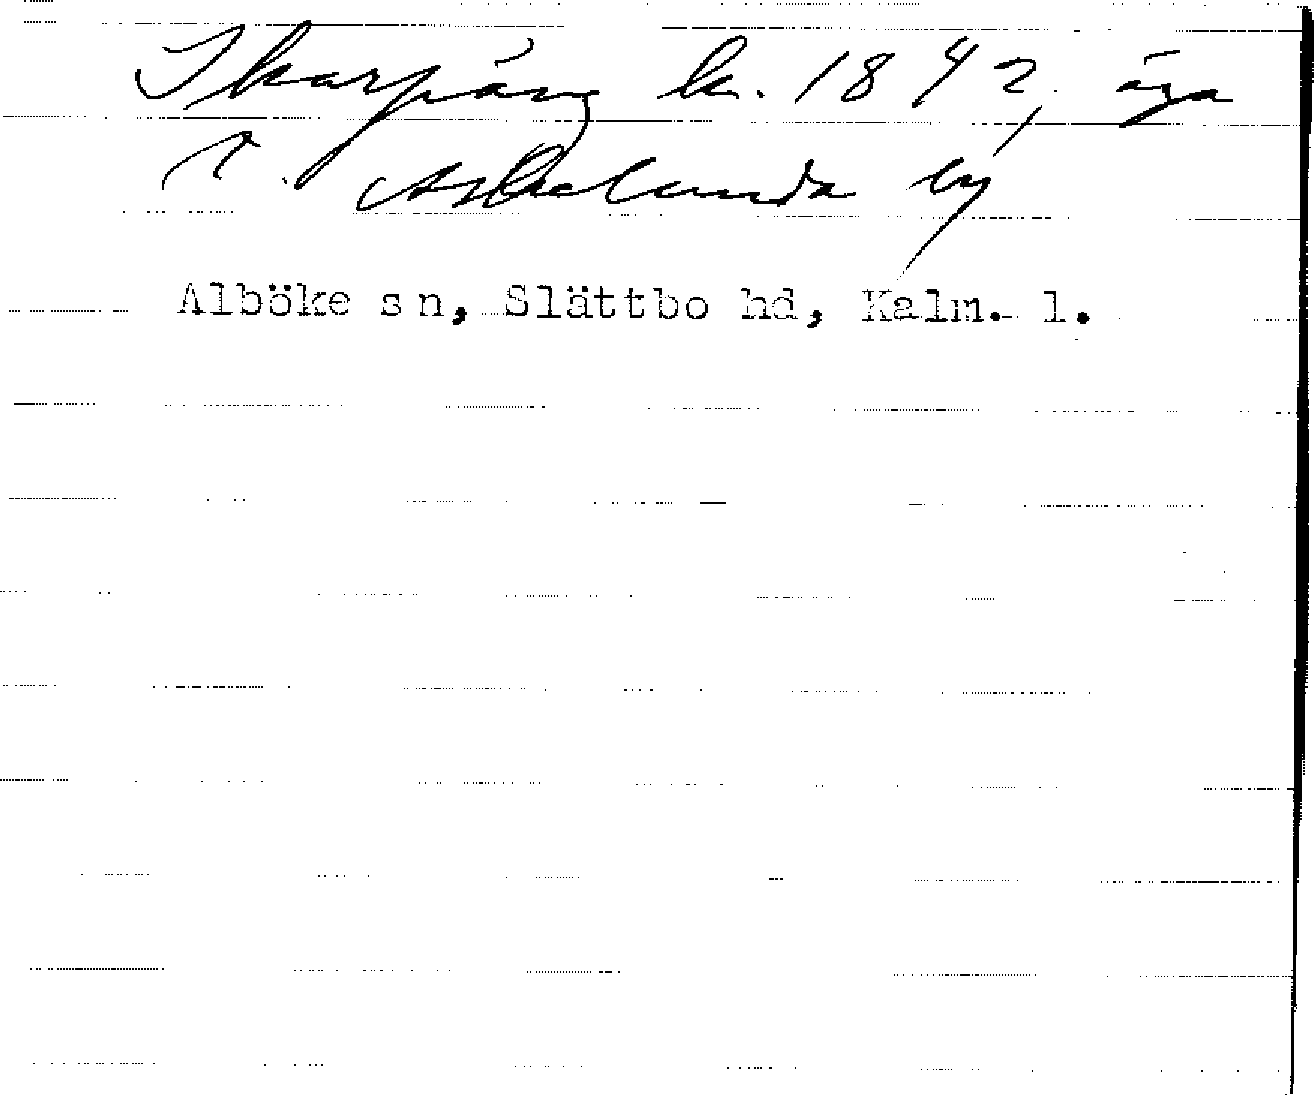 Skarpäng k. 1842, äga
t. Askelunda by
Alböke sn, Slättbo hd, Kalm. l.